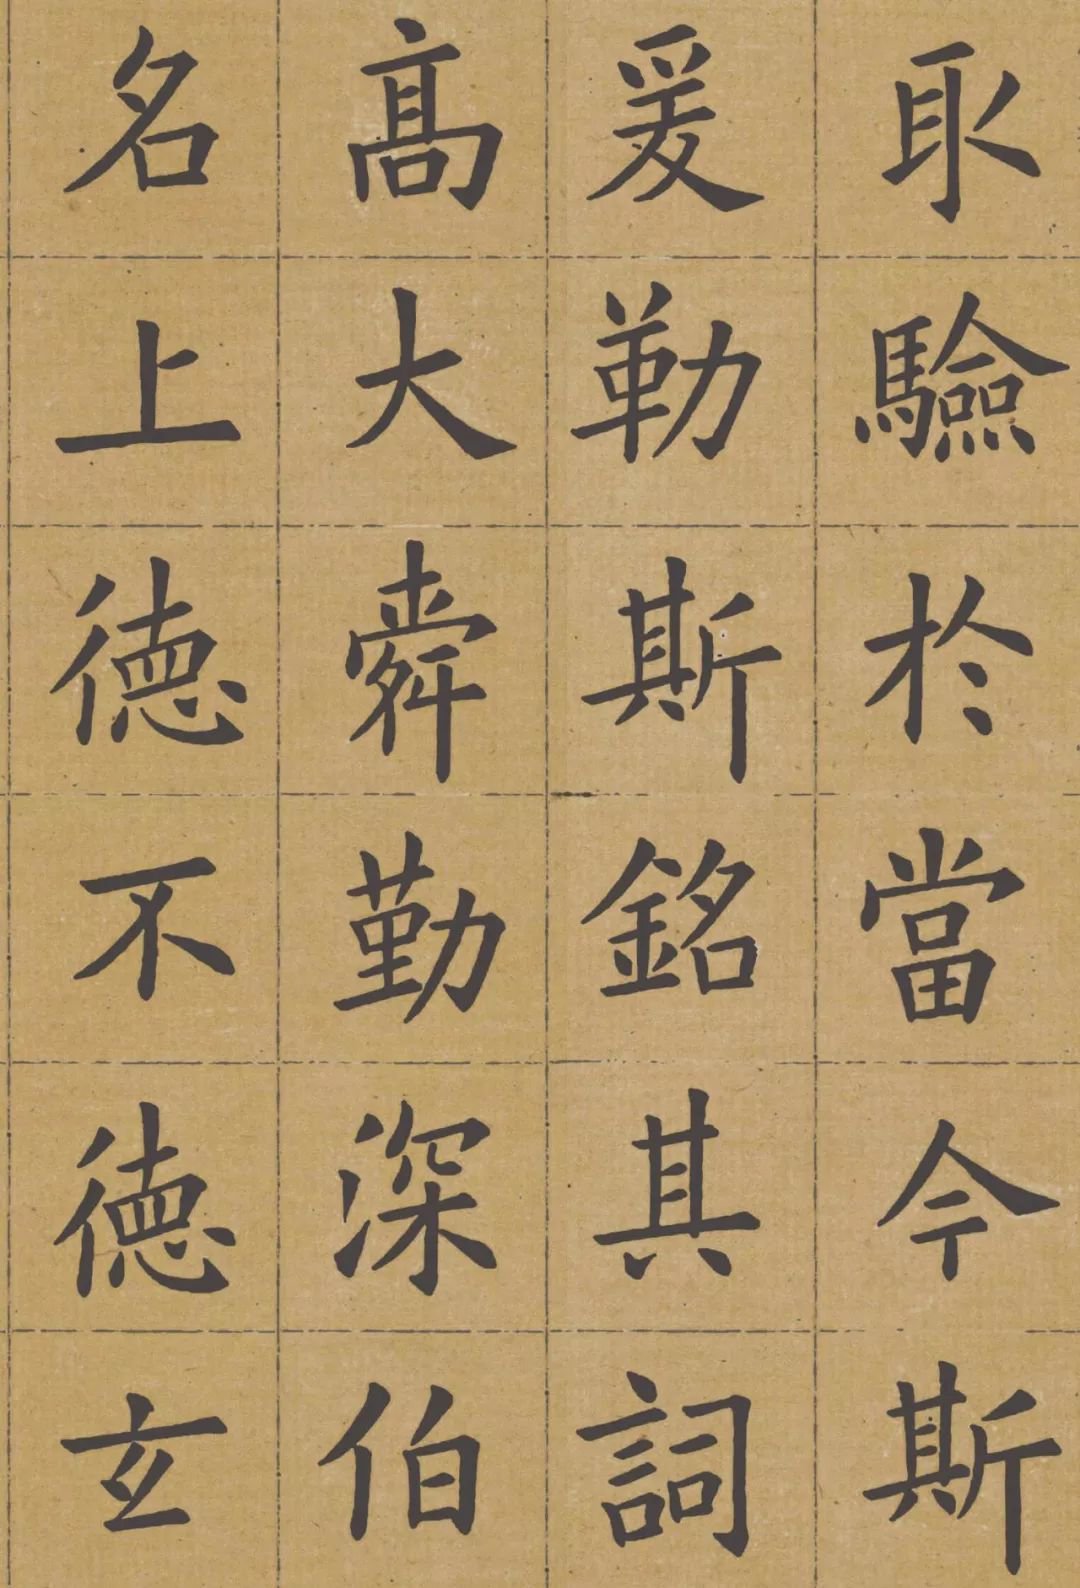 取驗於當今斯
爰勒斯銘其詞
高大舜勤深伯
名上德不德玄